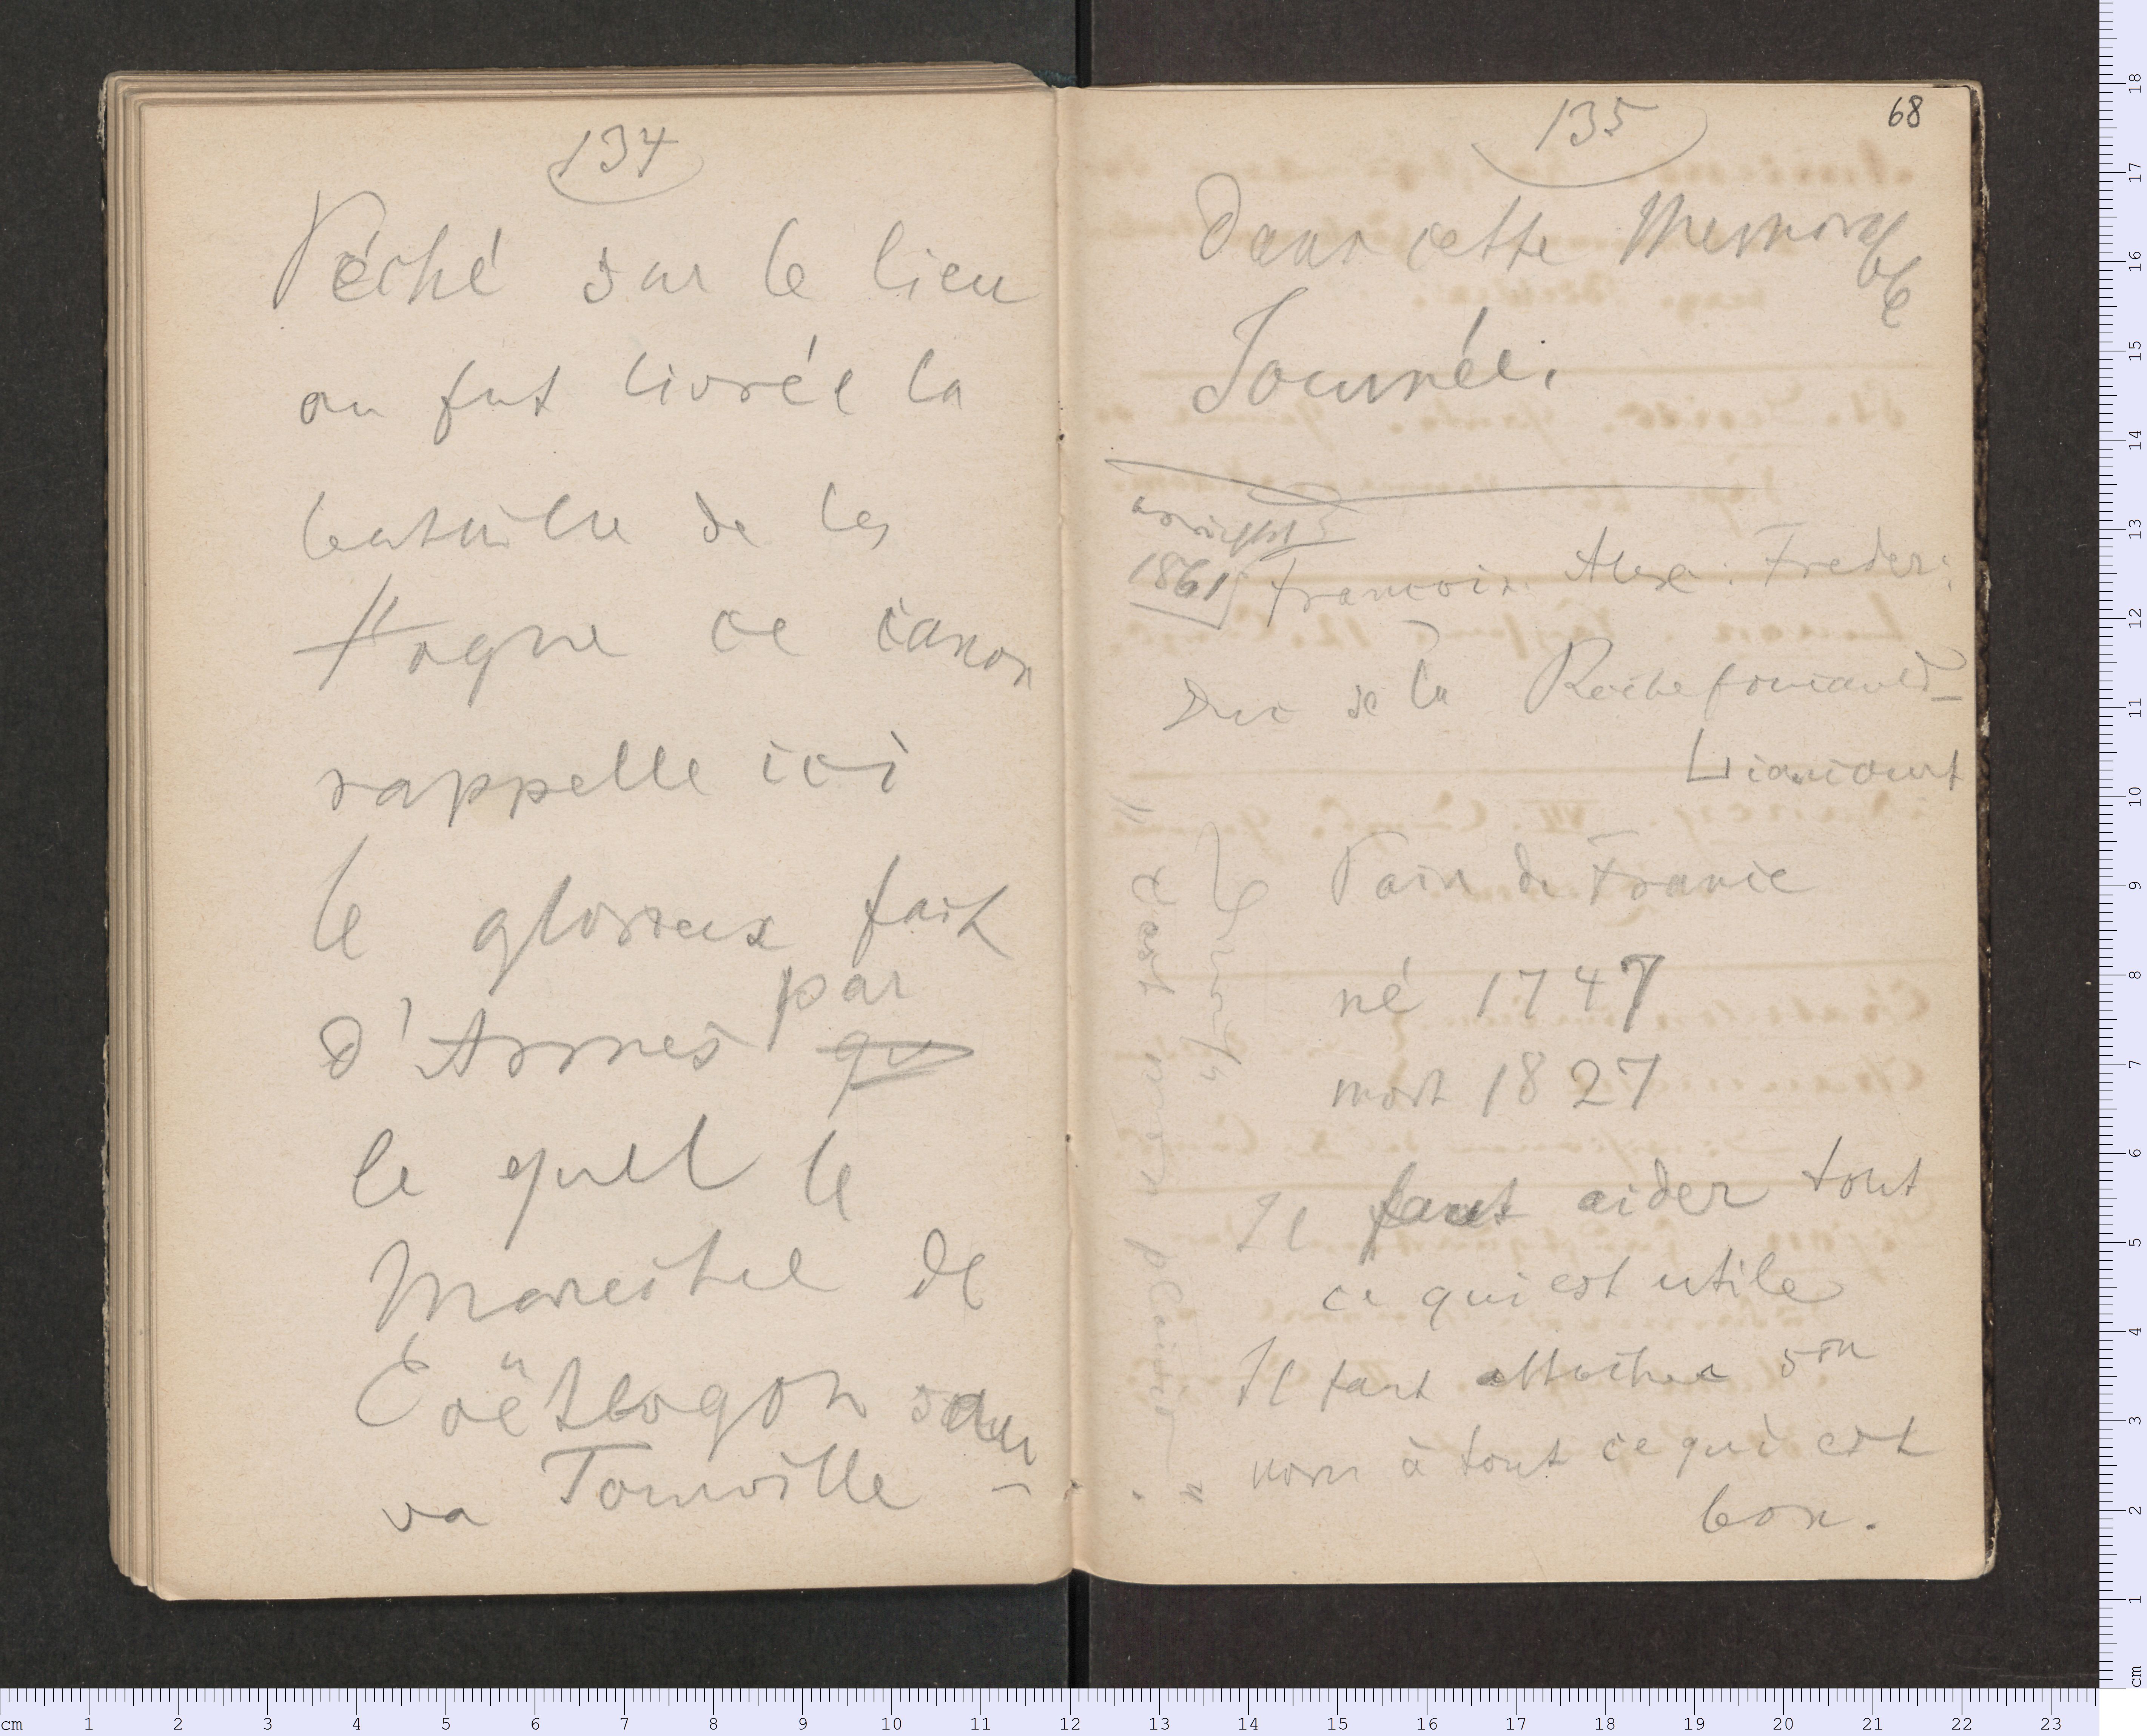 134
Péché sur le lieu
ou fut livrée la
bataille de la
Hogue ce canon
rappelle ici
le glorieux fait
d'Armes par qu
le quel le
Marechal de
Coëtlogon sau
va Tourville -
68
135
Dans cette Memorable
Journée.
1861
Francois Alex: Freder:
Duc de la Rochefoucauld-
Liancourt
Pair de France
né 1747
mort 1827
Il faut aider tout
ce qui est utile
Il faut attacher son
nom à tout ce qui est
bon.
"C'est mon plaisir"